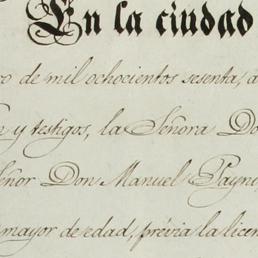 En la ciudad
ro de mil ochocientos sesenta, a
n y testigos, la Señora Do
Señor Don Manuel Payno
mayor de edad, prévia la licen